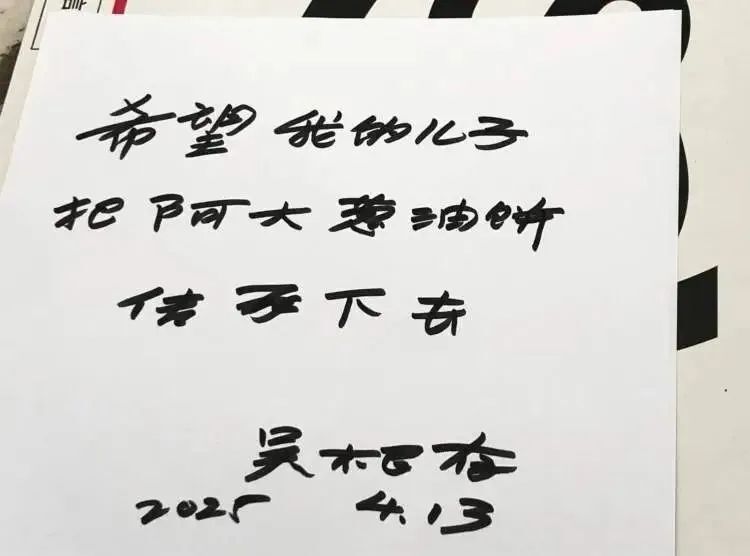 希望我的儿子
把阿大葱油饼
传承下去
吴根存
2025 4.13